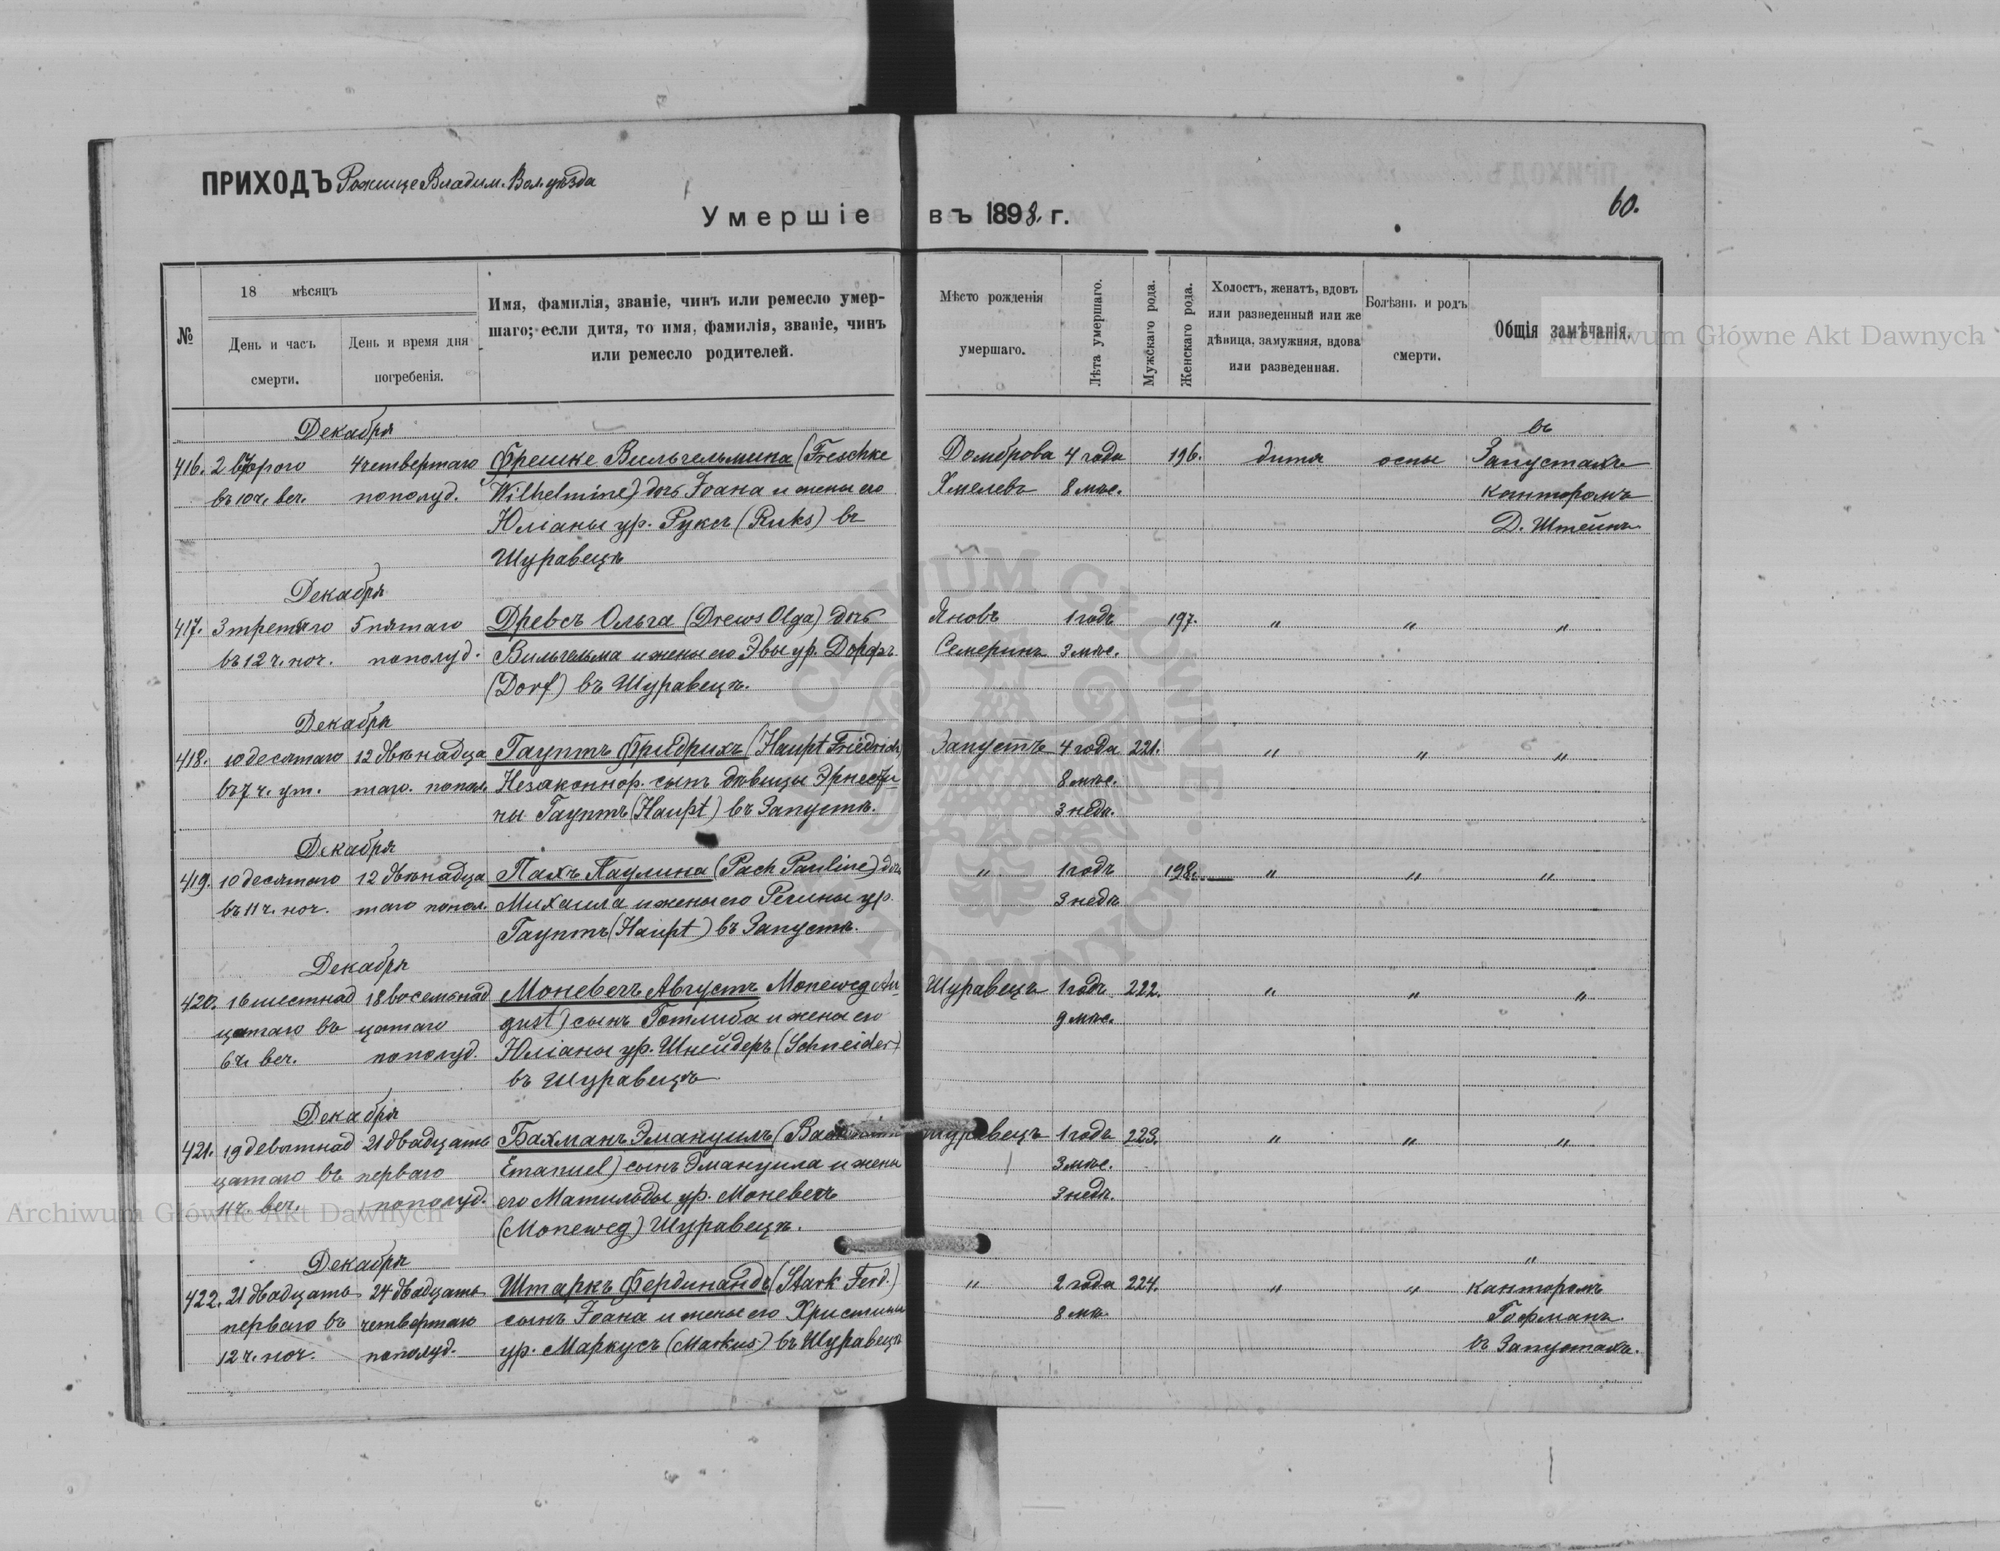 ПРИХОДЪ Рожище Владим. Вол. уѣзда
Умершіе въ 1898. г.
60.
№
18 мѣсяцъ
День и часъ смерти.
День и время дня погребенія.
Имя, фамилія, званіе, чинъ или ремесло умер-
шаго; если дитя, то имя, фамилія, званіе, чинъ
или ремесло родителей.
Мѣсто рожденія умершаго.
Лѣта умершаго.
Мужскаго рода.
Женскаго рода.
Холостъ, женатъ, вдовъ
или разведенный или же
дѣвица, замужняя, вдова
или разведенная.
Болѣзнь и родъ смерти.
Общія замѣчанія.
Archiwum Główne Akt Dawnych
Декабря въ
416. 2 второго 4 четвертаго Фрешке Вильгельмина (Freschke Домброва 4 года 196. дитя оспы Запустахъ
въ 10 ч. веч. пополуд. Wilhelmine) дочь Іоана и жены его Хмелевъ 8 мѣс. канторомъ
Юліаны ур. Руксъ (Ruks) въ Д. Штейнъ
Щуравецъ
Декабря
417. 3 третьяго 5 пятаго Древсъ Ольга (Drews Olga) дочь Яновъ 1 годъ 197. " " "
въ 12 ч. ноч. пополуд. Вильгельма и жены его Эвы ур. Дорфъ Семеринъ 3 мѣс.
(Dorf) въ Щуравецъ.
Декабря
418. 10 десятаго 12 двѣнадца Гауптъ Фридрихъ (Haupt Friedrich) Запустъ 4 года 221. " " "
въ 7 ч. ут. таго. попол. Незаконнор. сынъ дѣвицы Эрнести- 8 мѣс.
ны Гауптъ (Haupt) въ Запустѣ. 3 недѣ.
Декабря
419. 10 десятаго 12 двѣнадца Пахъ Паулина (Pach Pauline) доч. " 1 годъ 198. " " "
въ 11 ч. ноч. таго попол. Михаила и жены его Регины ур. 3 недѣ.
Гауптъ (Haupt) въ Запустѣ.
Декабря
420. 16 шестнад 18 восемьнад Моневегъ Августъ Moneweg Au- Щуравецъ 1 годъ 222. " " "
цатаго въ цатаго gust) сынъ Готлиба и жены его 9 мѣс.
6 ч. веч. пополуд. Юліаны ур. Шнейдеръ (Schneider)
въ Щуравецъ
Декабря
421. 19 девятнад 21 двадцать Бахманъ Эмануилъ ( Щуравецъ 1 годъ 223. " " "
цатаго въ перваго Emanuel) сынъ Эмануила и жены 3 мѣс.
11 ч. веч. пополуд. его Матильды ур. Моневегъ 3 недѣ.
(Moneweg) Щуравецъ.
Декабря "
422. 21 двадцать 24 двадцать Штаркъ Фердинандъ (Stark Ferd.) " 2 года 224. " " канторомъ
перваго въ четвертаго сынъ Іоана и жены его Христины 8 мѣ. Гофманъ
12 ч. ноч. пополуд. ур. Маркусъ (Markus) въ Щуравецъ въ Запустахъ.
Archiwum Główne Akt Dawnych
ARCHIWUM GŁÓWNE AKT DAWNYCH